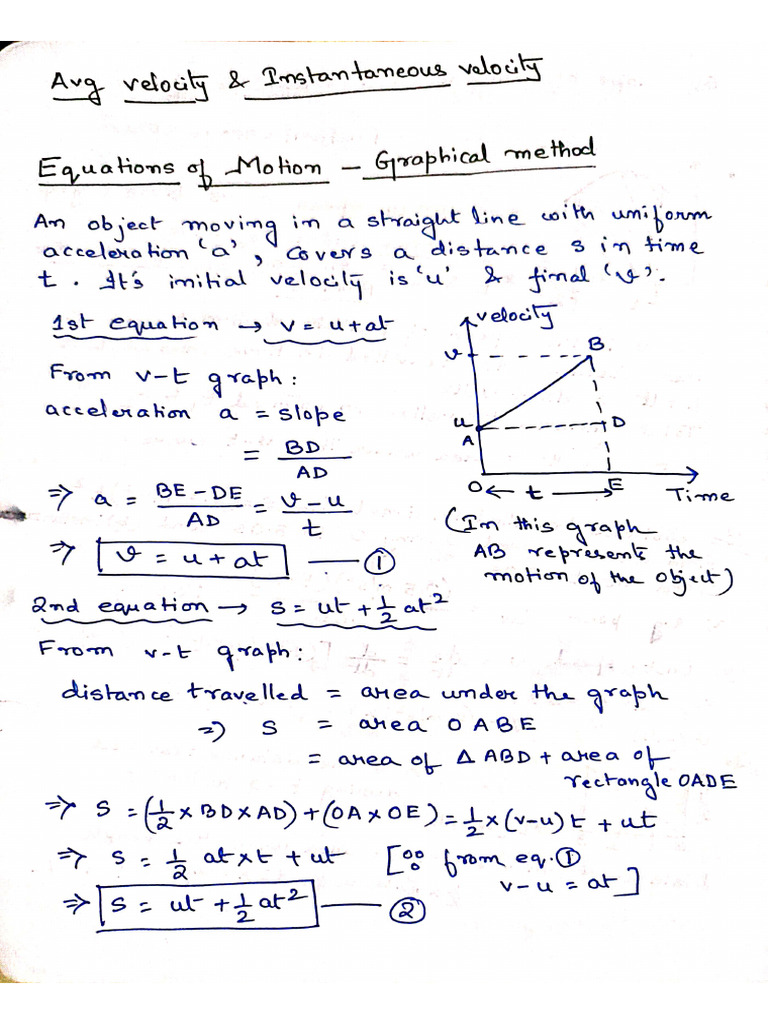 Avg velocity & Instantaneous velocity
Equations of Motion – Graphical method
An object moving in a straight line with uniform
acceleration 'a', covers a distance s in time
t. It's initial velocity is 'u' & final 'v'.
1st equation → v = u + at
From v-t graph:
acceleration a = slope
= BD/AD
⇒ a = (BE - DE)/AD = (v - u)/t
⇒ v = u + at —— ①
velocity
v
B
u
A
D
O
← t →
E
Time
(In this graph
AB represents the
motion of the object)
2nd equation → s = ut + 1/2 at²
From v-t graph:
distance travelled = area under the graph
⇒ s = area OABE
= area of Δ ABD + area of
rectangle OADE
⇒ s = (1/2 × BD × AD) + (OA × OE) = 1/2 × (v-u)t + ut
⇒ s = 1/2 at × t + ut [∵ from eq. ①
v - u = at]
⇒ s = ut + 1/2 at² —— ②